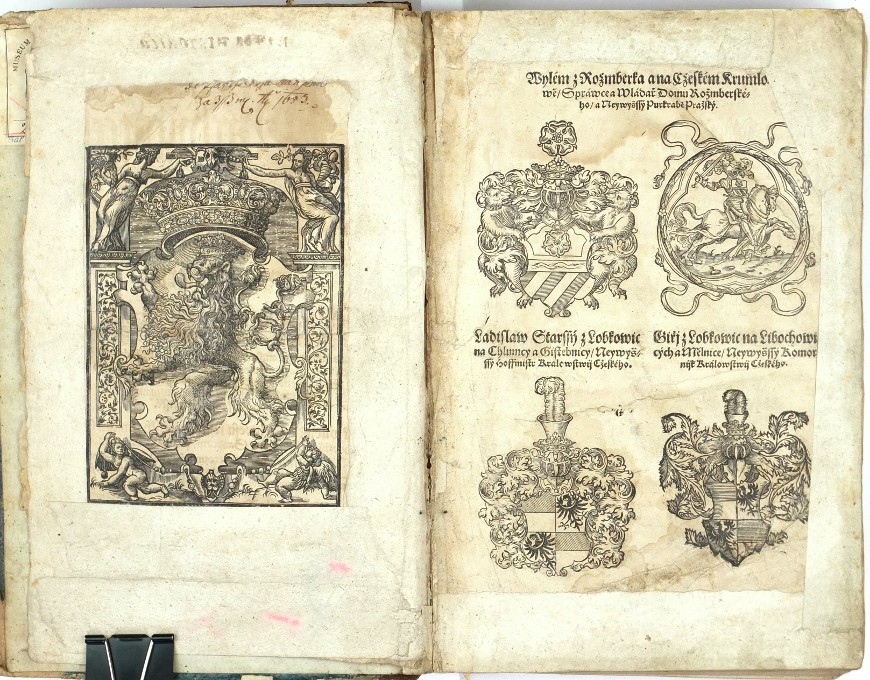 MUSEUM
1683.
Wylém z Rožmberka a na Czeském Krumlo-
wě/ Spráwce a Wládař Domu Rožmberské-
ho/ a Neywyšssý Purkrabě Pražský.
Ladislaw Starssý z Lobkowic
na Chlumcy a Gistebnicy/ Neywyš-
ssý Hoffmistr Kralowstwij Cžeského.
Giřj z Lobkowic na Libochowi
cých a Mělnice/ Neywyšssý Komor
nijk Králowstwij Cžeského.